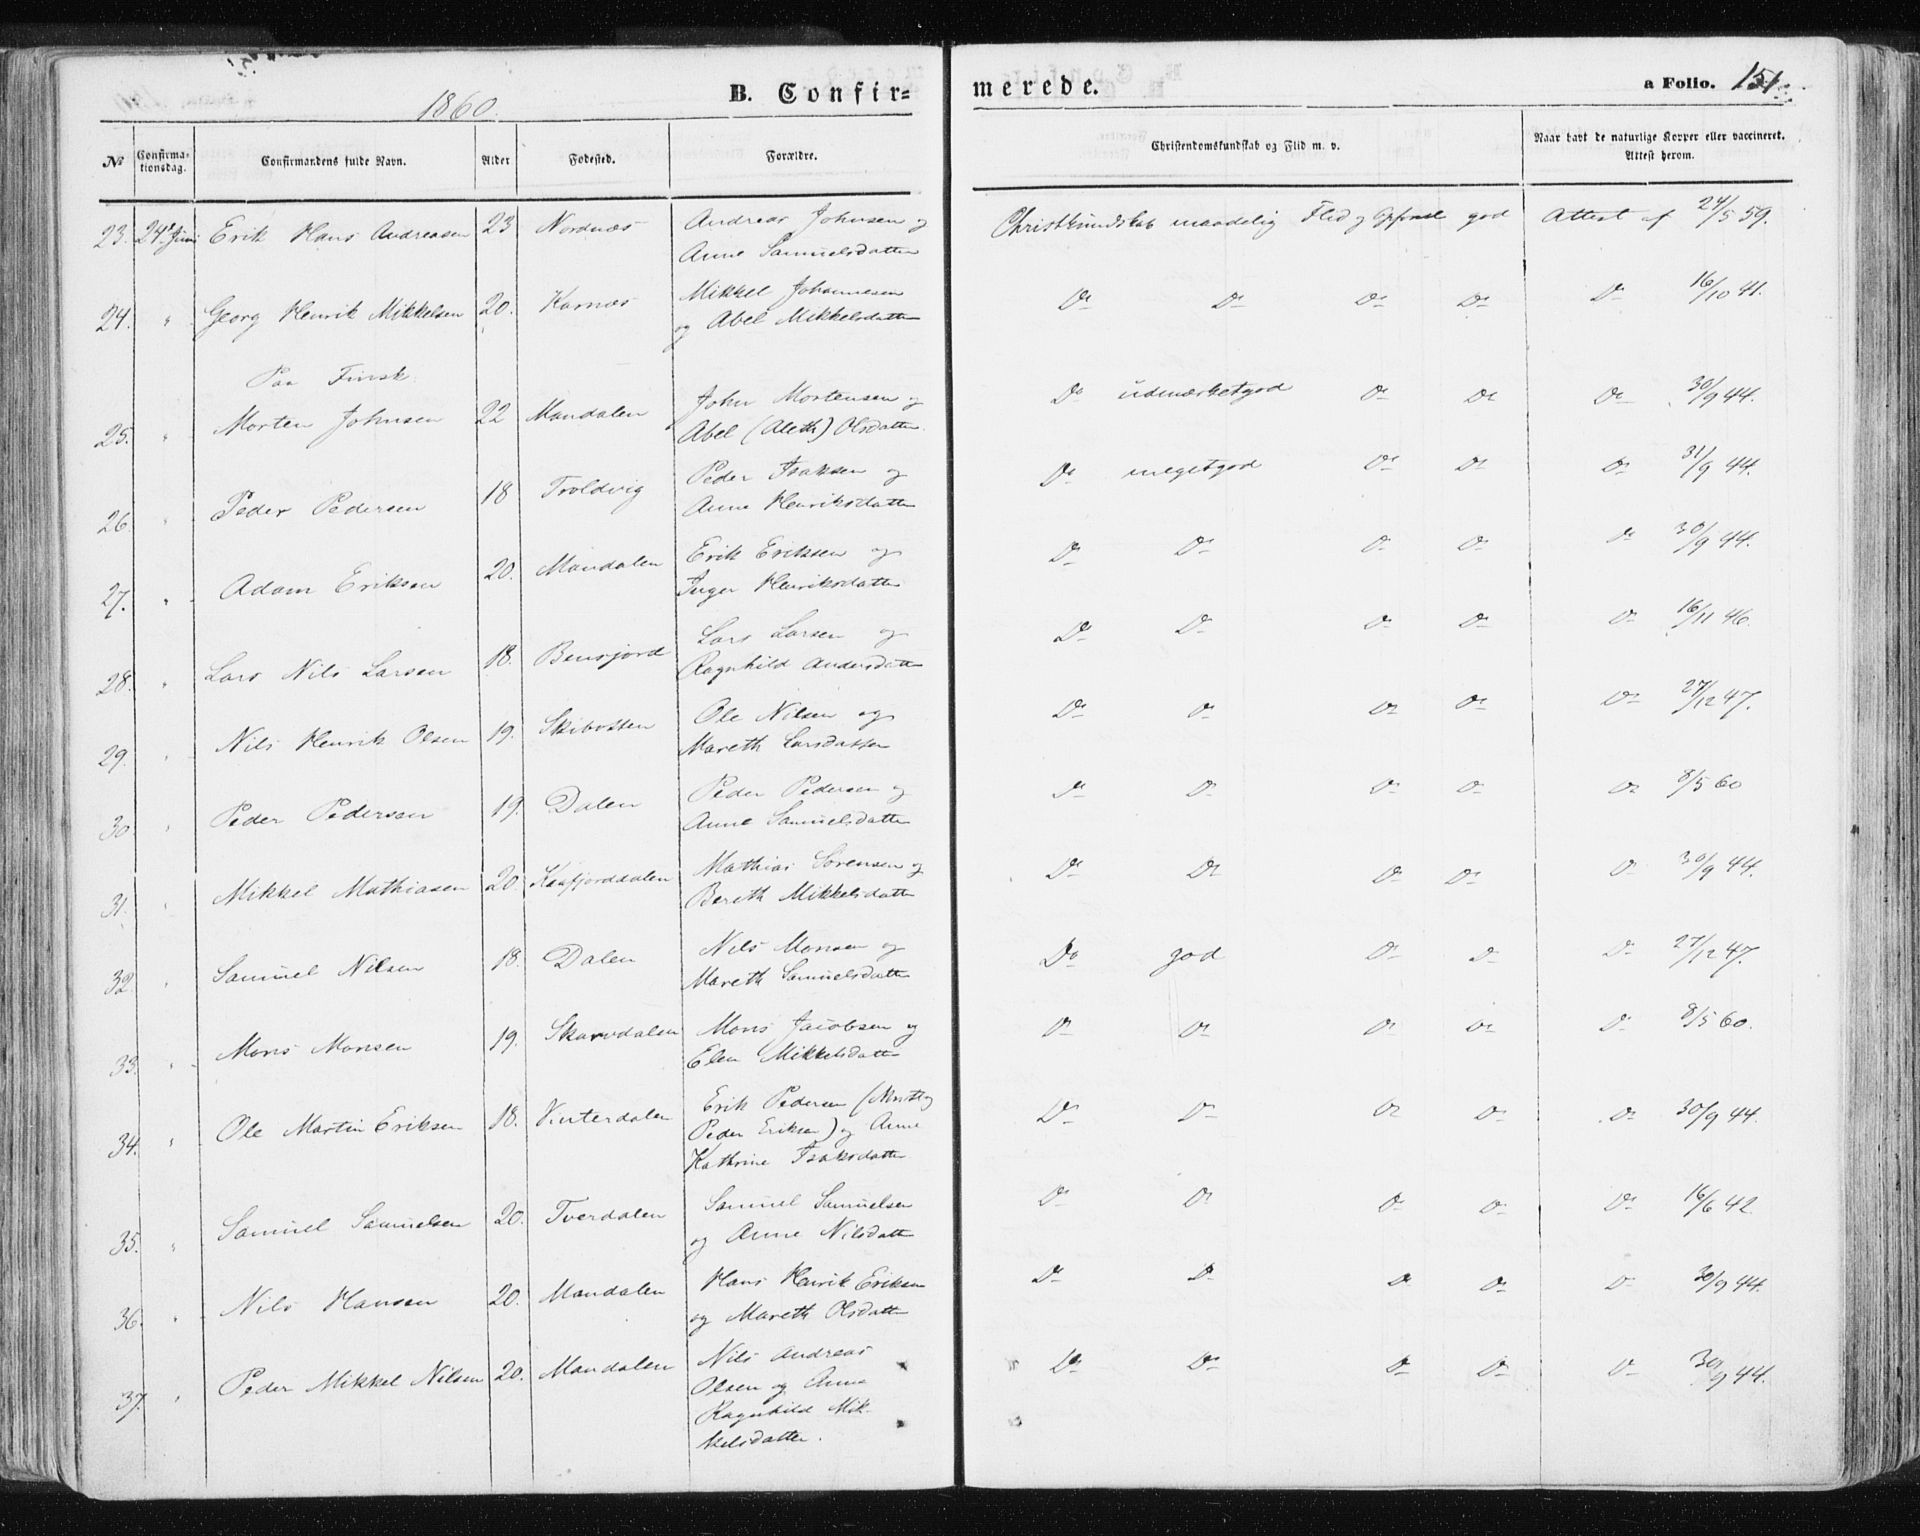 1860.
B. Confir=
merede.
a Folio. 151.
No Confirmationsdag. Confirmandens fulde Navn. Alder Fodested. Forældre. Christendomskundskab og Flid m. v. Naar havt de naturlige Kopper eller vaccineret. Attest herom.
23. 24de Juni Erik Hans Andreasen 23 Nordnæs Andreas Johnsen og Christkundskab maadelig Flid og Opførsel god Attest af 24/5 59.
Anne Samuelsdatter
24. " Georg Henrik Mikkelsen 20. Karnæs Mikkel Johannesen Do Do Do Do Do 16/10 41.
og Abel Mikkelsdatter
Paa Finsk
25. " Morten Johnsen 22 Mandalen John Mortensen og Do udmærketgod Do Do Do 30/9 44.
Abel (Aleth) Olsdatter
26 " Peder Pedersen 18 Troldvig Peder Isaksen og Do megetgod Do Do Do 31/9 44.
Anne Henriksdatter
27. " Adam Eriksen 20. Mandalen Erik Eriksen og Do Do Do Do Do 30/9 44.
Inger Henriksdatter
28. " Lars Nils Larsen 18. Bensjord Lars Larsen og Do Do Do Do Do 16/11 46.
Ragnhild Andersdatter
29. " Nils Henrik Olsen 19. Skibotten Ole Nilsen og Do Do Do Do Do 27/12 47.
Mareth Larsdatter
30 " Peder Pedersen 19. Dalen Peder Pedersen og Do Do Do Do Do 8/5 60
Anne Samuelsdatter
31. " Mikkel Mathiasen 20. Kaafjorddalen Mathias Sørensen og Do Do Do Do Do 30/9 44.
Bereth Mikkelsdatter
32. " Samuel Nilsen 18. Dalen Nils Monsen og Do god Do Do Do 27/12 47.
Mareth Samuelsdatter
33. " Mons Monsen 19. Skarvdalen Mons Jacobsen og Do Do Do Do Do 8/5 60.
Elen Mikkelsdatter
34. " Ole Martin Eriksen 18. Vinterdalen Erik Pedersen ( Do Do Do Do Do 30/9 44.
Peder Eriksen) og Anne
Kathrine Isaksdatter
35. " Samuel Samuelsen 20. Tverdalen Samuel Samuelsen Do Do Do Do Do 16/6 42
og Anne Nilsdatter
36. " Nils Hansen 20. Mandalen Hans Henrik Eriksen Do Do Do Do Do 30/9 44.
og Mareth Olsdatter
37. " Peder Mikkel Nilsen 20. Mandalen Nils Andreas Do Do Do Do Do 30/9 44.
Olsen og Anna
Ragnhild Mik-
kelsdatter.